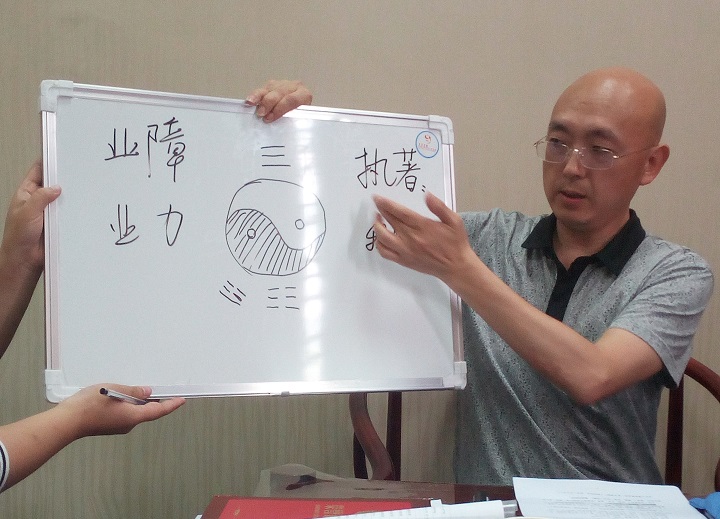 业障
业力
☰
执著:
☷